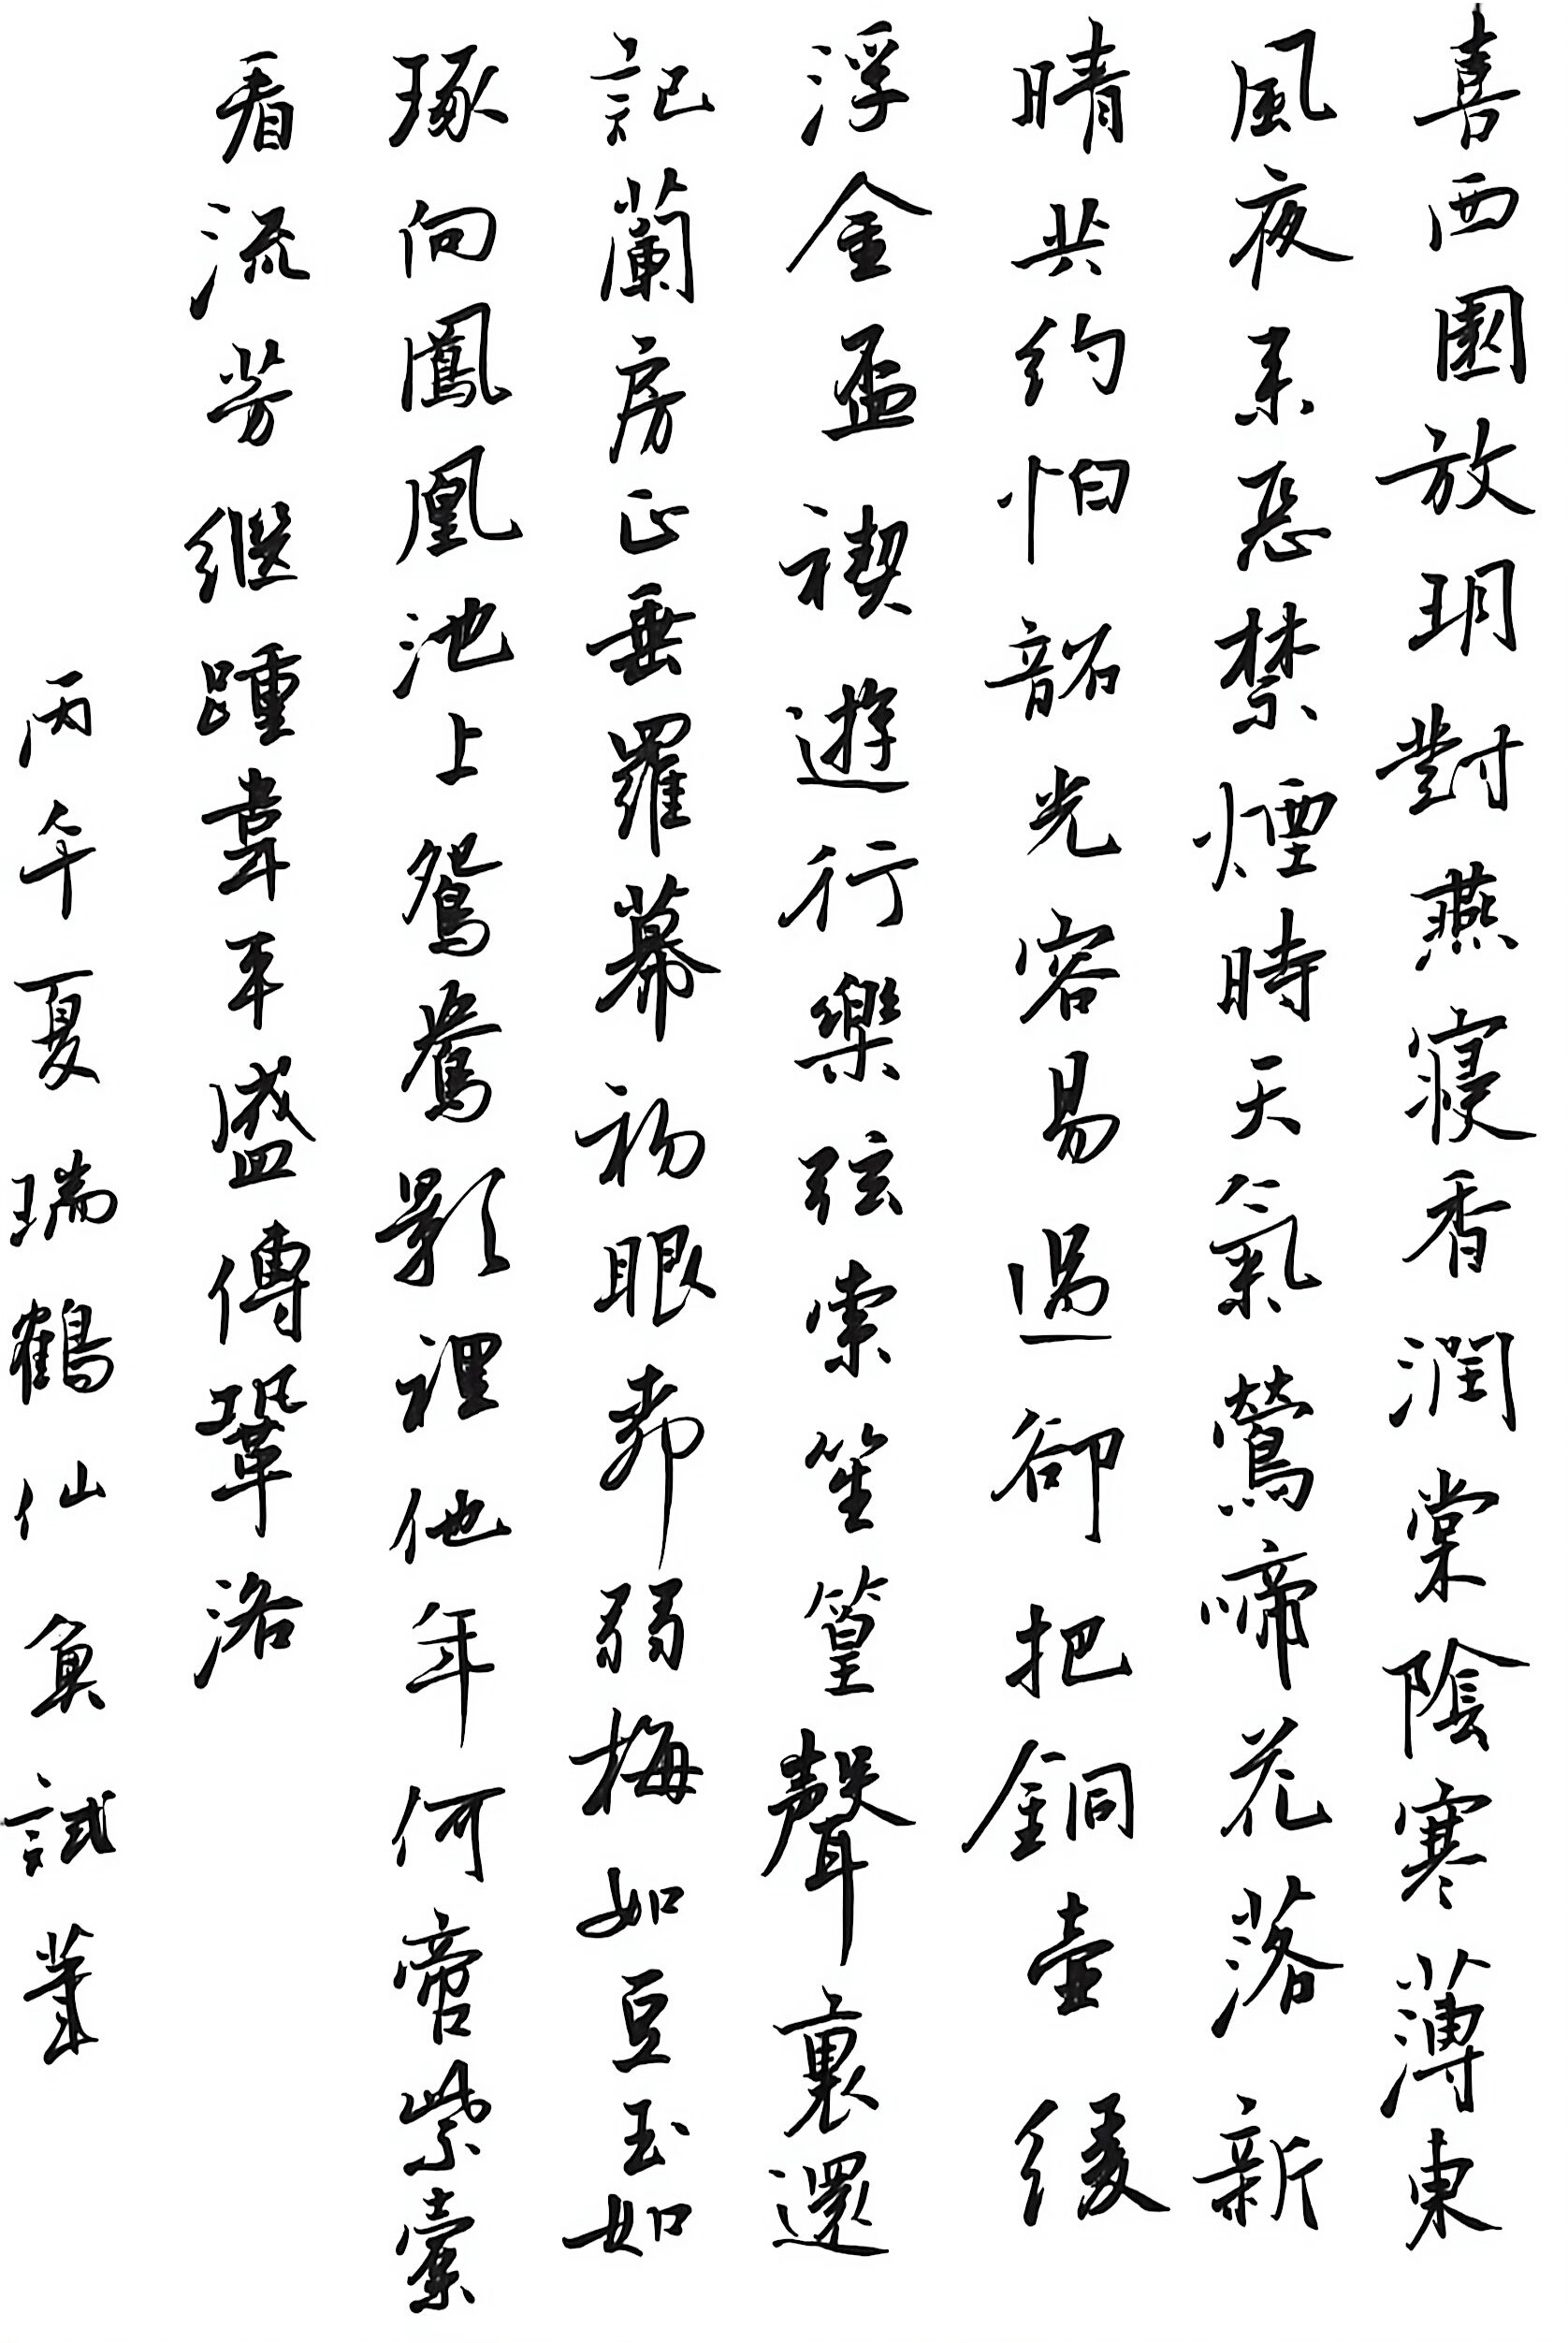 喜西園放玥對燕寢香潤棠陰寒薄東
風夜来惡禁煙時天氣鶯啼花落新
晴共約怕韶光容易過卻把銅壺緩
浮金盃禊遊行樂弦索笙篁聲裏還
記蘭房正垂羅幕初眠柳弱梅如豆玉如
琢向鳳凰池上鴛鴦影裡他年何啻紫橐
看流芳繼踵韋平盛傳鞏洛
丙午夏瑞鶴仙奐試筆